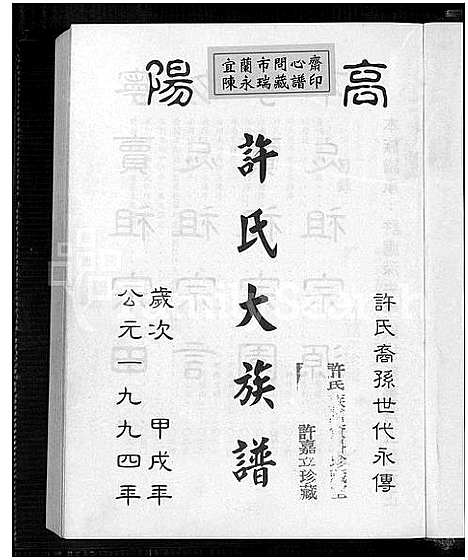 宜蘭市問心齋
陳永瑞藏譜印
高陽
許氏裔孫世代永傳
許氏
許嘉立珍藏
許氏大族譜
歲次 甲戌年
公元一九九四年